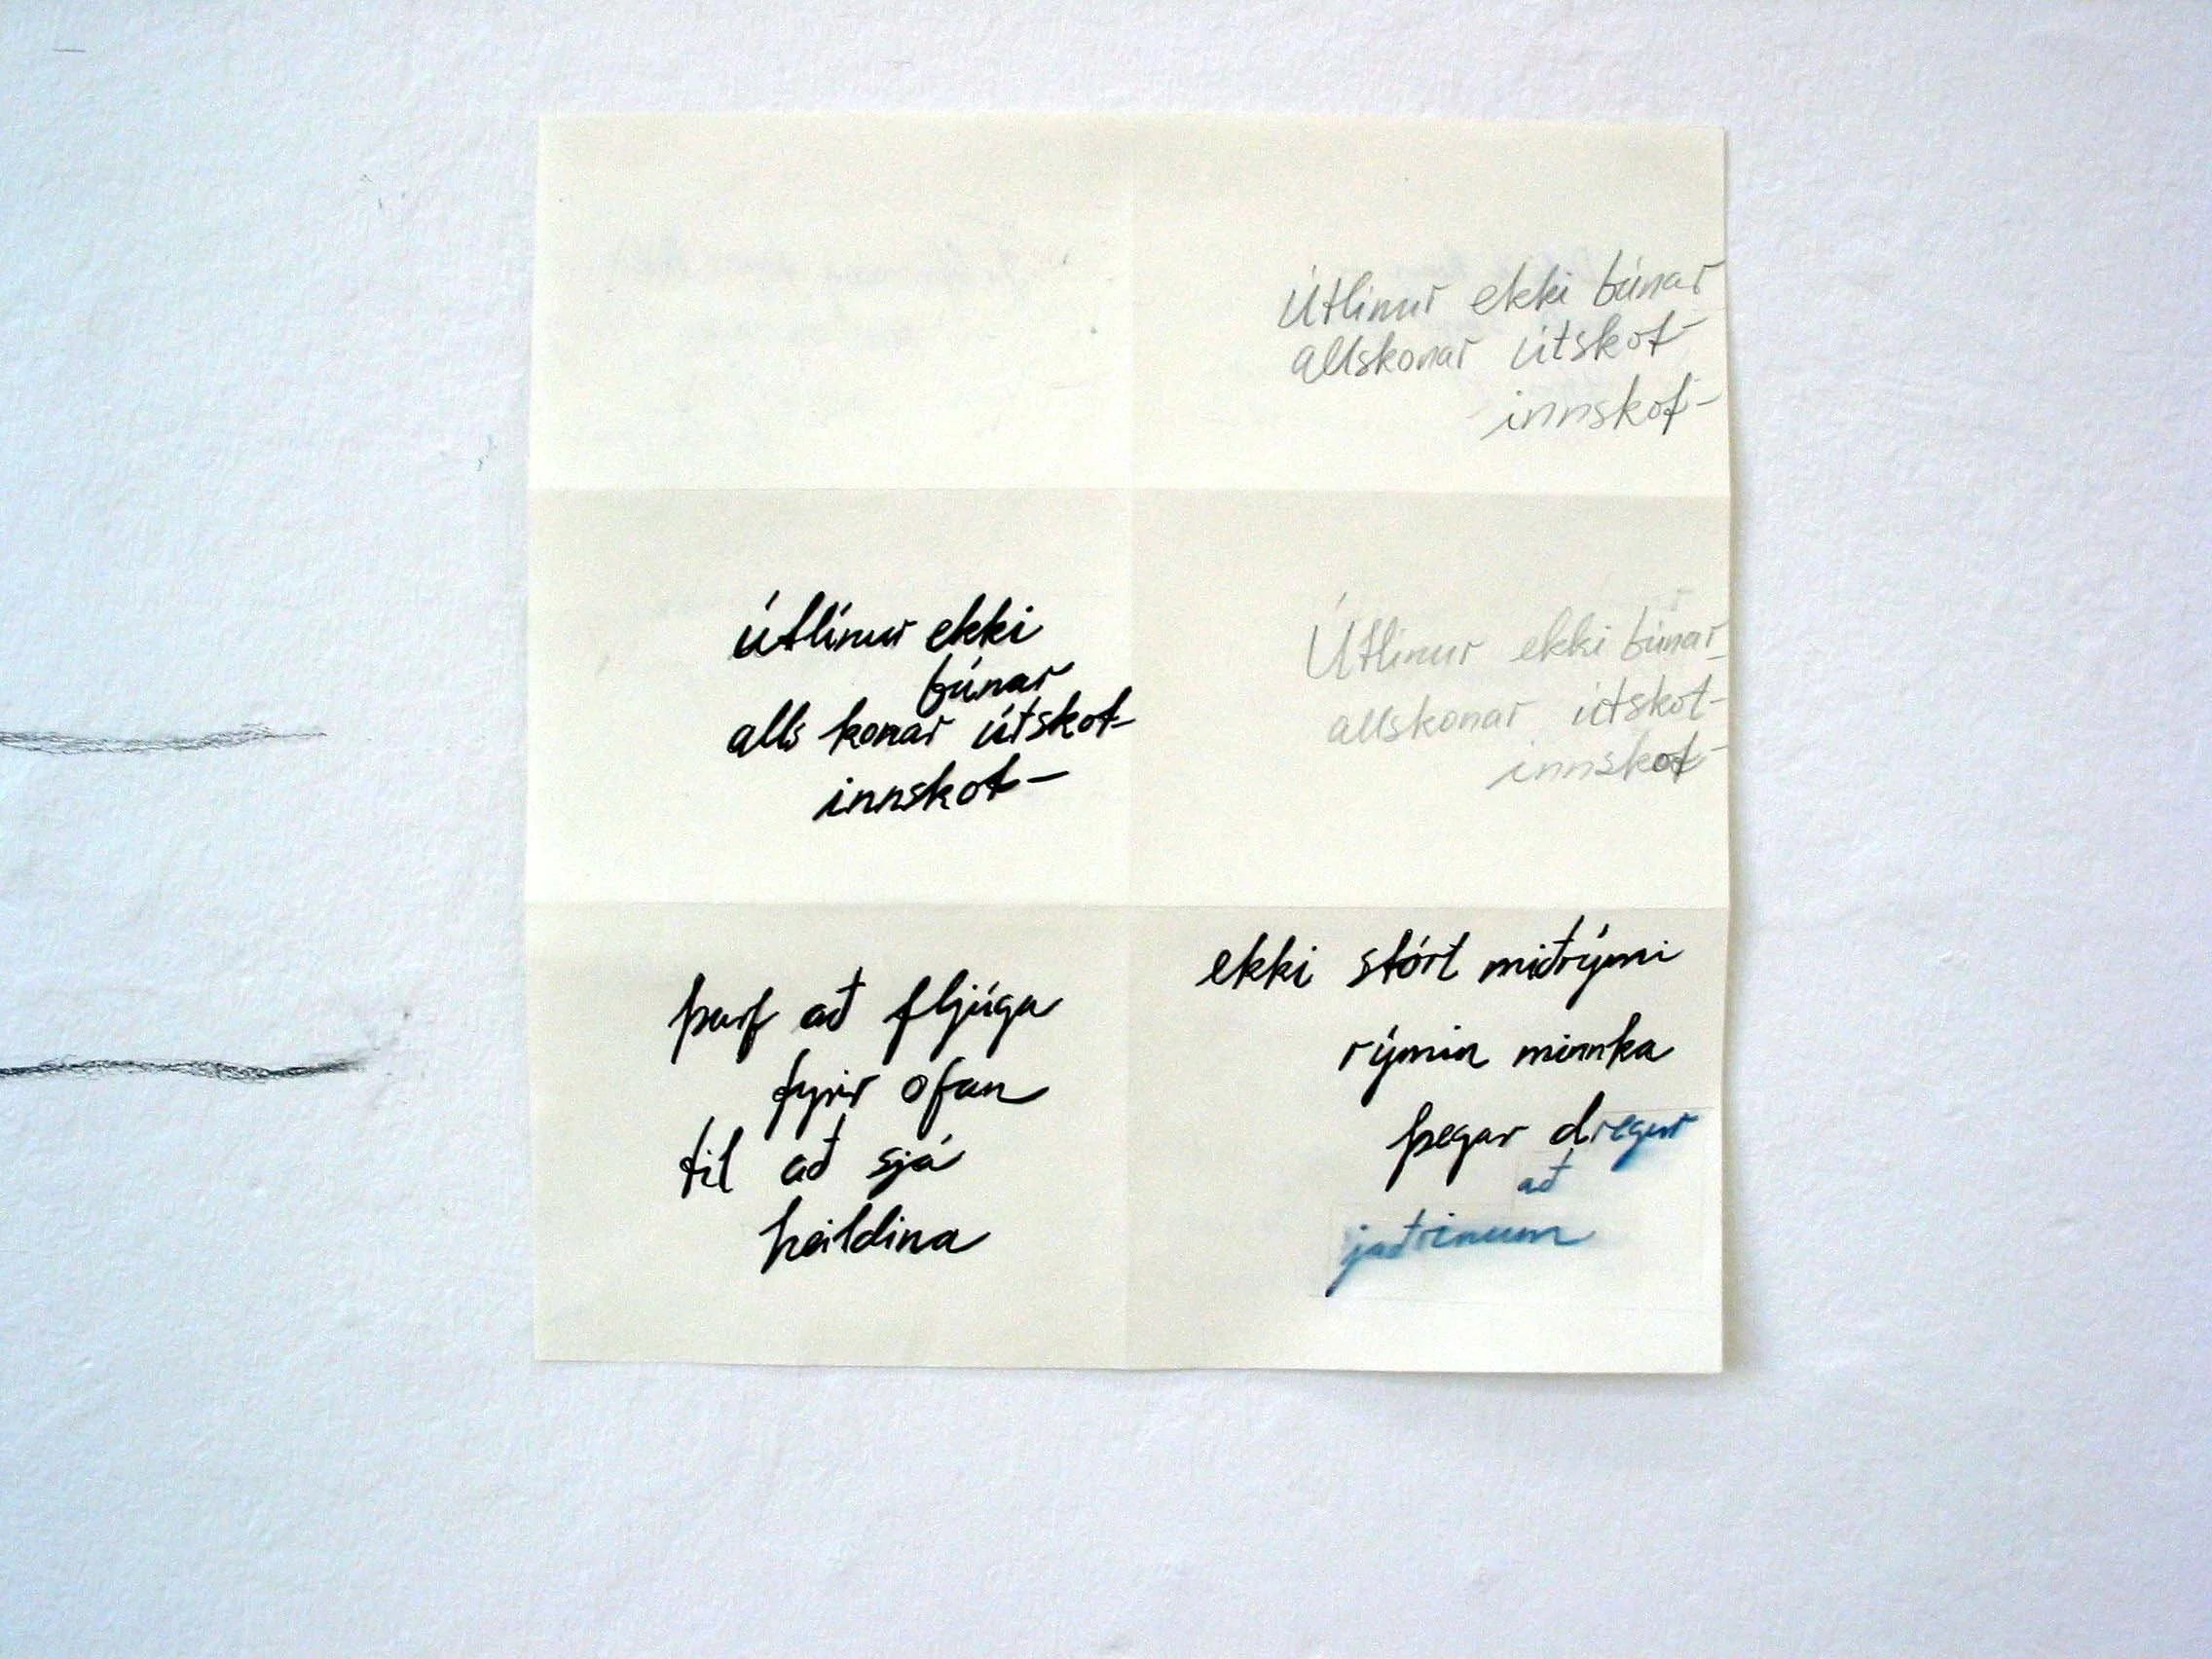 Útlínur ekki búnar
allskonar útskot-
innskot-
útlínur ekki
búnar
alls konar útskot-
innskot-
Útlínur ekki búnar
allskonar útskot-
innskot-
þarf að fljúga
fyrir ofan
til að sjá
heildina
ekki stórt miðrými
rýmin minnka
þegar dregur
að
jaðrinum